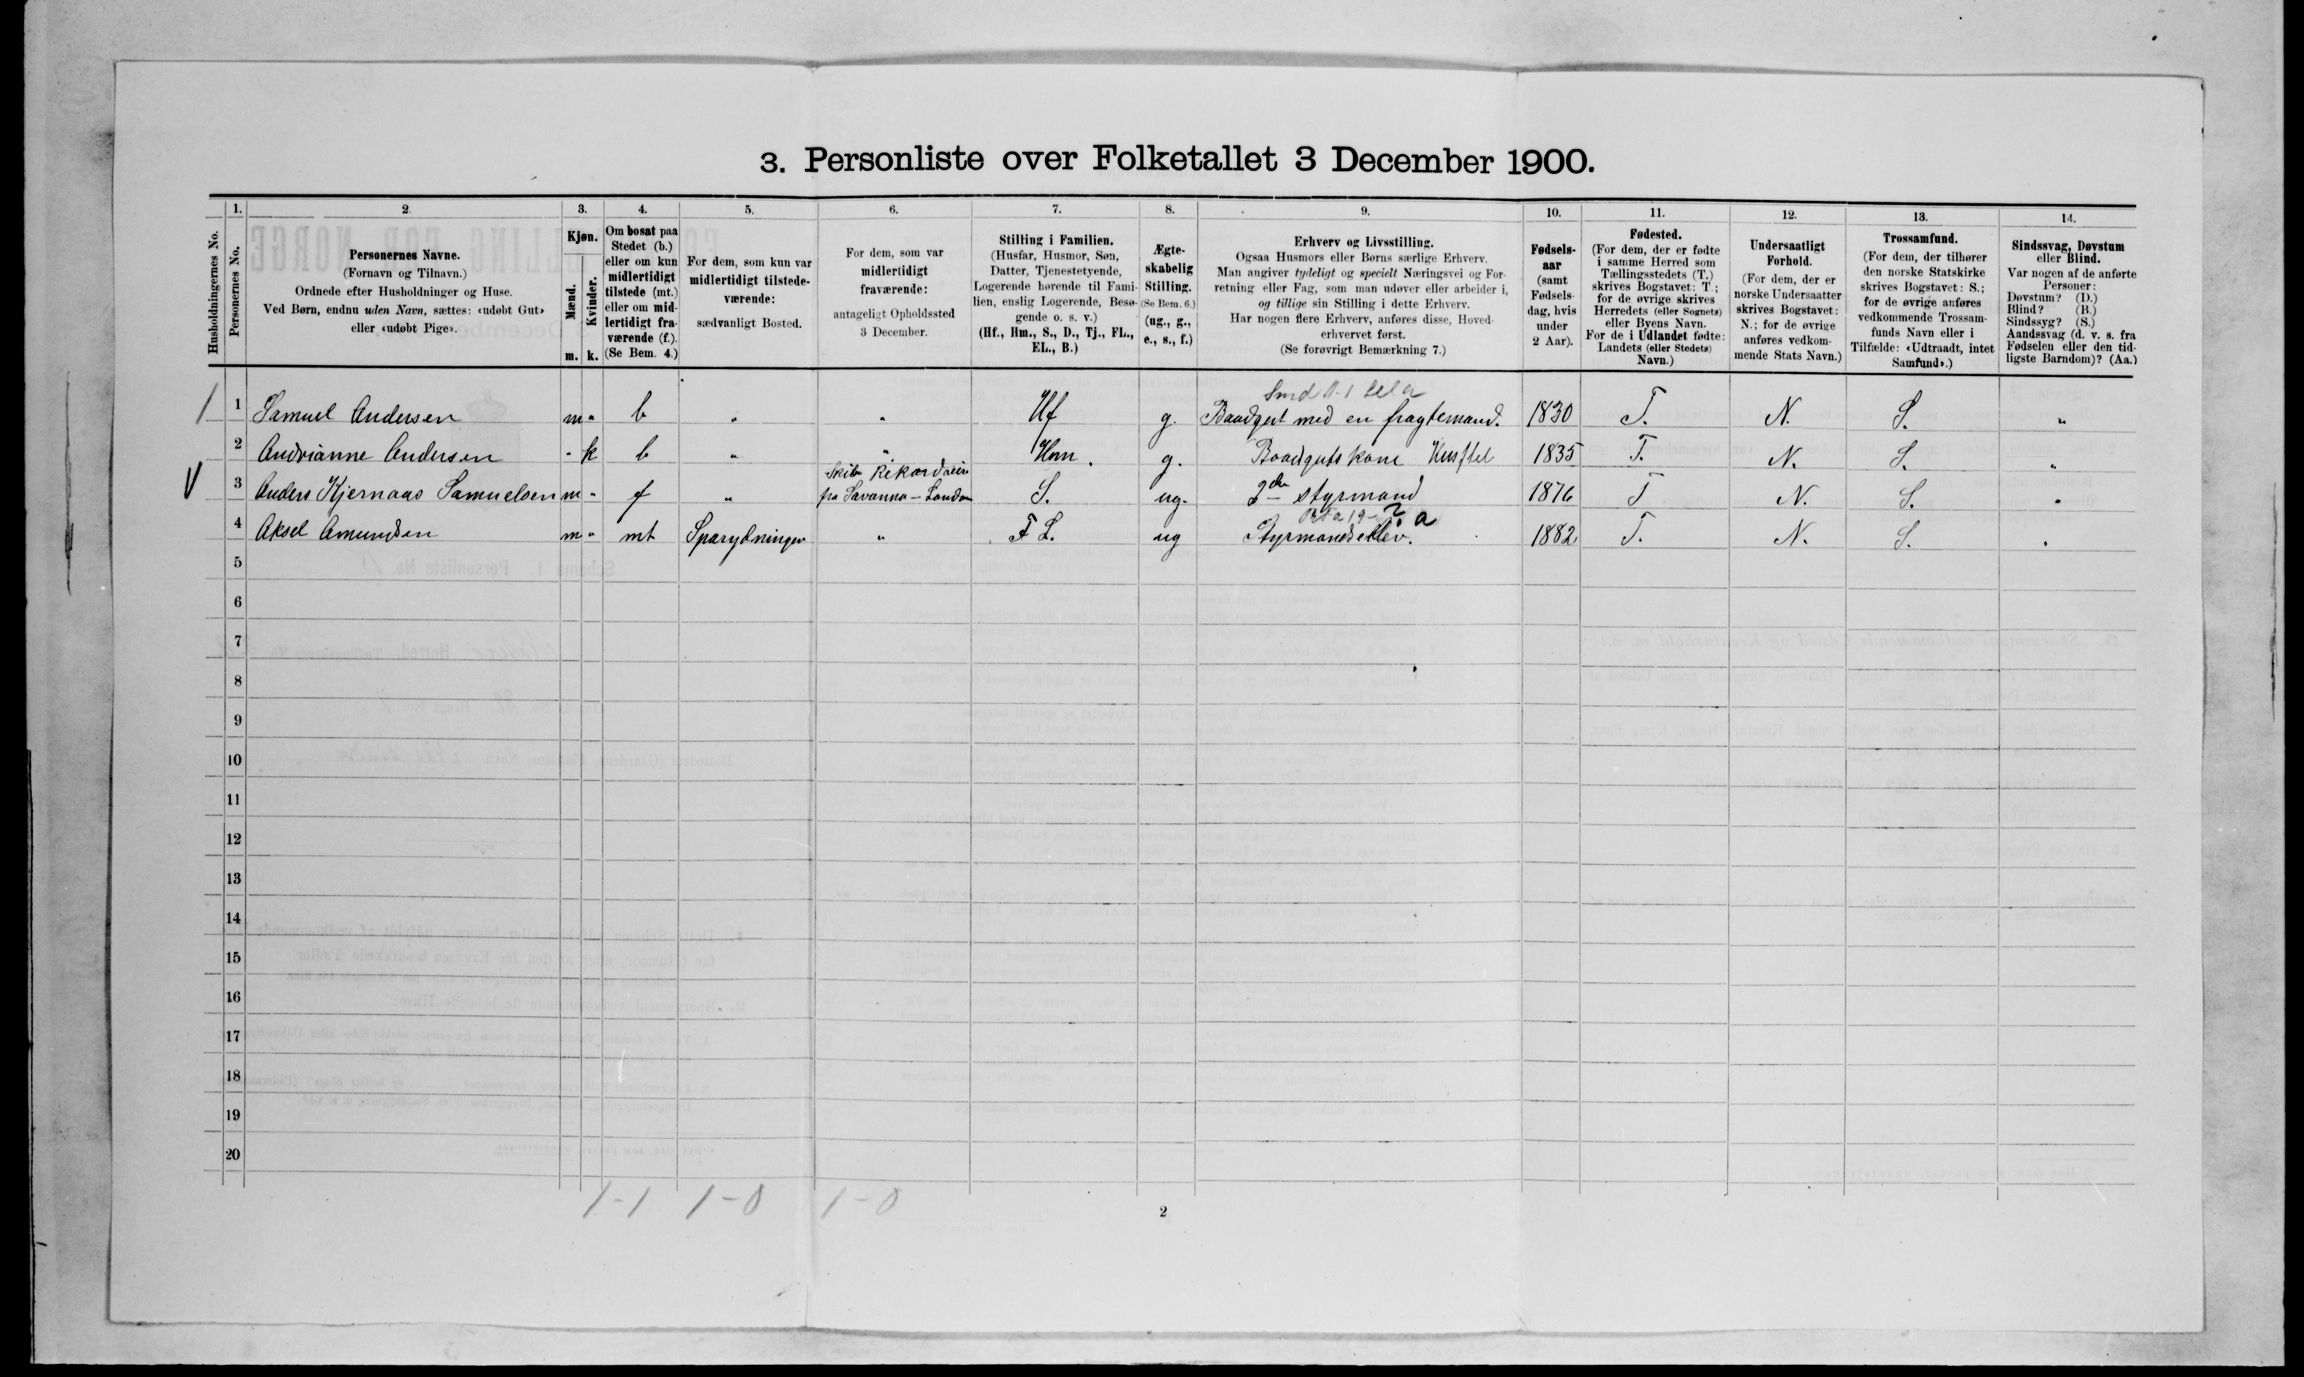 3. Personliste over Folketallet 3 December 1900.
1. 2. 3. 4. 5. 6. 7. 8. 9. 10. 11. 12. 13. 14.
Husholdningernes No.
Personernes No.
Personernes Navne.
(Fornavn og Tilnavn.)
Ordnede efter Husholdninger og Huse.
Ved Børn, endnu uden Navn, sættes: «udøbt Gut»
eller «udøbt Pige».
Kjøn.
Mænd.
Kvinder.
m. k.
Om bosat paa
Stedet (b.)
eller om kun
midlertidigt
tilstede (mt.)
eller om mid-
lertidigt fra-
værende (f.).
(Se Bem. 4.)
For dem, som kun var
midlertidigt tilstede-
værende:
sædvanligt Bosted.
For dem, som var
midlertidigt
fraværende:
antageligt Opholdssted
3 December.
Stilling i Familien.
(Husfar, Husmor, Søn,
Datter, Tjenestetyende,
Logerende hørende til Fami-
lien, enslig Logerende, Besø-
gende o. s. v.)
(Hf., Hm., S., D., Tj., FL.,
EL., B.)
Ægte-
skabelig
Stilling.
(Se Bem. 6.)
(ug., g.,
e., s., f.)
Erhverv og Livsstilling.
Ogsaa Husmors eller Børns særlige Erhverv.
Man angiver tydeligt og specielt Næringsvei og For-
retning eller Fag, som man udøver eller arbeider i,
og tillige sin Stilling i dette Erhverv.
Har nogen flere Erhverv, anføres disse, Hoved-
erhvervet først.
(Se forøvrigt Bemærkning 7.)
Fødsels-
aar
(samt
Fødsels-
dag, hvis
under
2 Aar).
Fødested.
(For dem, der er fødte
i samme Herred som
Tællingsstedets (T.)
skrives Bogstavet: T.;
for de øvrige skrives
Herredets (eller Sognets)
eller Byens Navn.
For de i Udlandet fødte:
Landets (eller Stedets)
Navn.)
Undersaatligt
Forhold.
(For dem, der er
norske Undersaatter
skrives Bogstavet:
N.; for de øvrige
anføres vedkom-
mende Stats Navn.)
Trossamfund.
(For dem, der tilhører
den norske Statskirke
skrives Bogstavet: S.;
for de øvrige anføres
vedkommende Trossam-
funds Navn eller i
Tilfælde: «Udtraadt, intet
Samfund».)
Sindssvag, Døvstum
eller Blind.
Var nogen af de anførte
Personer:
Døvstum? (D.)
Blind? (B.)
Sindssyg? (S.)
Aandssvag (d. v. s. fra
Fødselen eller den tid-
ligste Barndom)? (Aa.)
1 1 Samuel Andersen m " b " " Hf g. Baadgut med en fragtemand. 1830 T. N. S. "
2 Andrianne Andersen " k b " " Hm. g. Baadgutskone 1835 T. N. S. "
Skib Rekord reise
V 3 Anders Kjernaas Samuelsen m " f " fra Savanna - London S. ug. 2den styrmand 1876 T N. S. "
4 Aksel Amundsen m " mt " F L. ug Styrmandselev. 1882 T. N. S. "
5
6
7
8
9
10
11
12
13
14
15
16
17
18
19
20
1-1 1-0 1-0
2